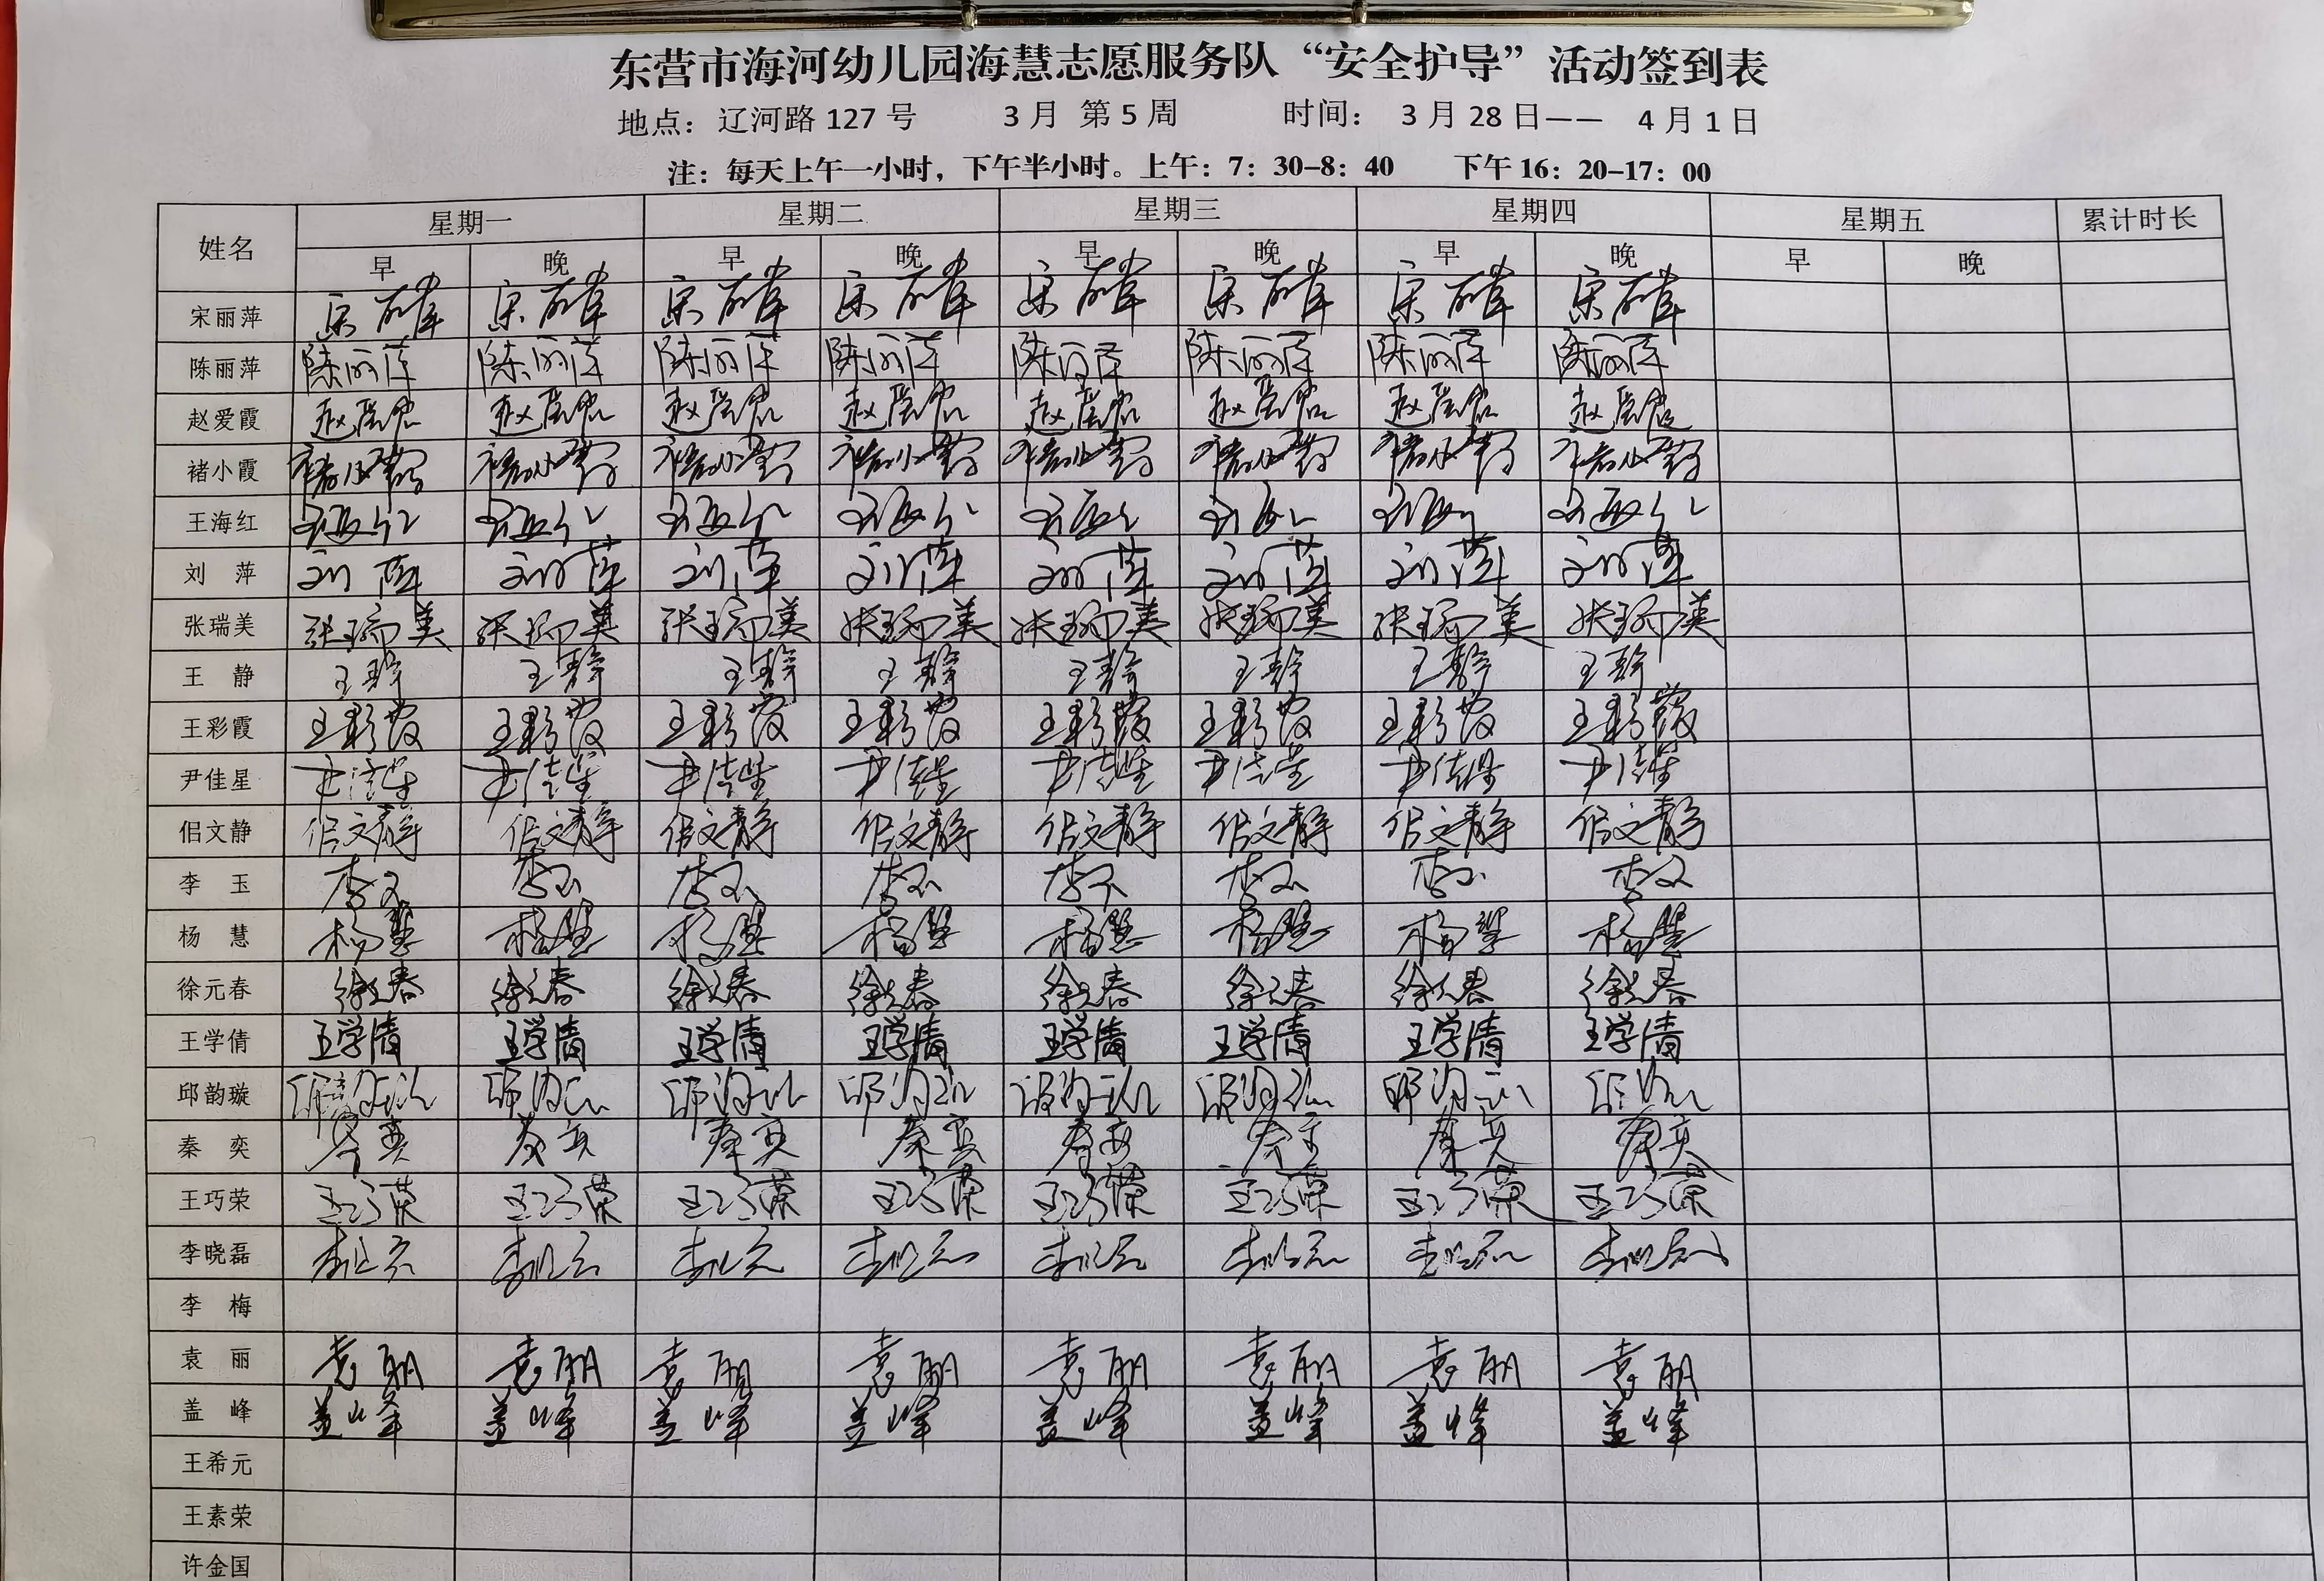 东营市海河幼儿园海慧志愿服务队“安全护导”活动签到表
地点：辽河路 127 号 3 月 第 5 周 时间： 3 月 28 日—— 4 月 1 日
注：每天上午一小时，下午半小时。上午：7：30-8：40 下午 16：20-17：00
姓名 星期一 星期二 星期三 星期四 星期五 累计时长
早 晚 早 晚 早 晚 早 晚 早 晚
宋丽萍 宋丽萍 宋丽萍 宋丽萍 宋丽萍 宋丽萍 宋丽萍 宋丽萍 宋丽萍
陈丽萍 陈丽萍 陈丽萍 陈丽萍 陈丽萍 陈丽萍 陈丽萍 陈丽萍 陈丽萍
赵爱霞 赵爱霞 赵爱霞 赵爱霞 赵爱霞 赵爱霞 赵爱霞 赵爱霞 赵爱霞
褚小霞 褚小霞 褚小霞 褚小霞 褚小霞 褚小霞 褚小霞 褚小霞 褚小霞
王海红
刘 萍 刘萍 刘萍 刘萍 刘萍 刘萍 刘萍 刘萍 刘萍
张瑞美 张瑞美 张瑞美 张瑞美 张瑞美 张瑞美 张瑞美 张瑞美 张瑞美
王 静 王静 王静 王静 王静 王静 王静 王静 王静
王彩霞 王彩霞 王彩霞 王彩霞 王彩霞 王彩霞 王彩霞 王彩霞 王彩霞
尹佳星 尹佳星 尹佳星 尹佳星 尹佳星 尹佳星 尹佳星 尹佳星 尹佳星
佀文静 佀文静 佀文静 佀文静 佀文静 佀文静 佀文静 佀文静 佀文静
李 玉 李玉 李玉 李玉 李玉 李玉 李玉 李玉 李玉
杨 慧 杨慧 杨慧 杨慧 杨慧 杨慧 杨慧 杨慧 杨慧
徐元春 徐元春 徐元春 徐元春 徐元春 徐元春 徐元春 徐元春 徐元春
王学倩 王学倩 王学倩 王学倩 王学倩 王学倩 王学倩 王学倩 王学倩
邱韵璇 邱韵璇 邱韵璇 邱韵璇 邱韵璇 邱韵璇 邱韵璇 邱韵璇 邱韵璇
秦 奕 秦奕 秦奕 秦奕 秦奕 秦奕 秦奕 秦奕 秦奕
王巧荣 王巧荣 王巧荣 王巧荣 王巧荣 王巧荣 王巧荣 王巧荣 王巧荣
李晓磊 李晓磊 李晓磊 李晓磊 李晓磊 李晓磊 李晓磊 李晓磊 李晓磊
李 梅
袁 丽 袁丽 袁丽 袁丽 袁丽 袁丽 袁丽 袁丽 袁丽
盖 峰 盖峰 盖峰 盖峰 盖峰 盖峰 盖峰 盖峰 盖峰
王希元
王素荣
许金国